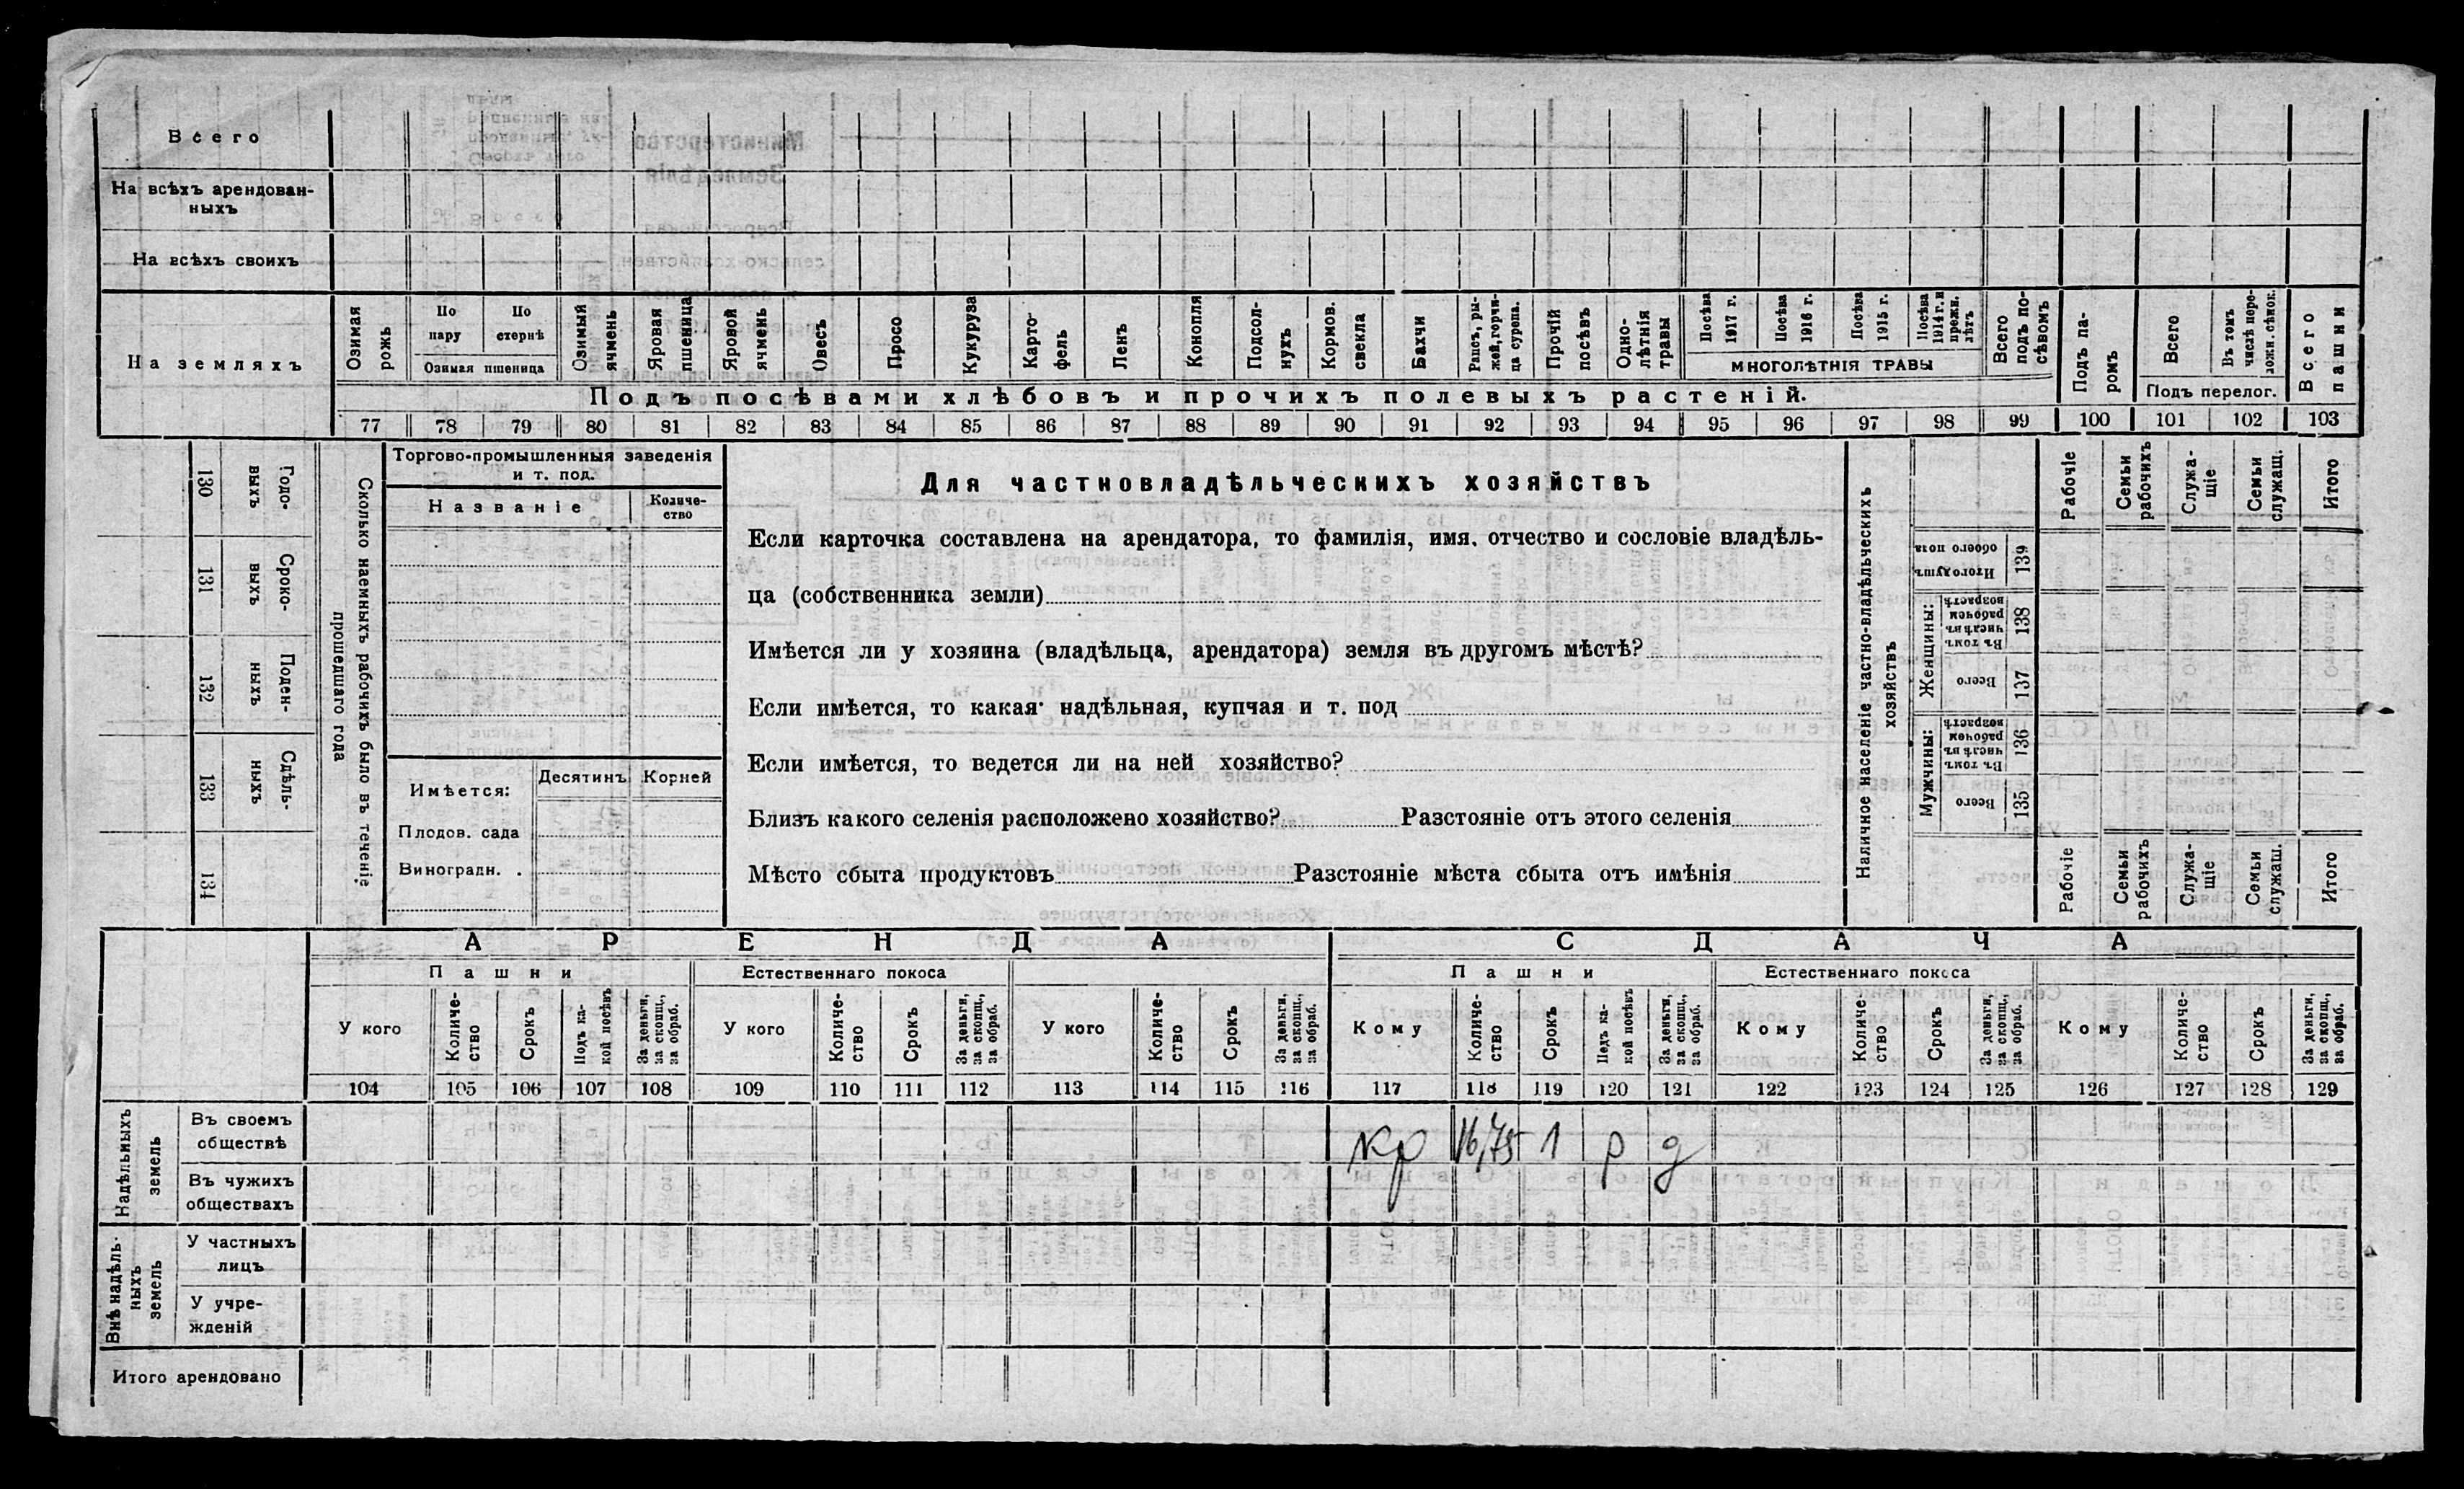 Всего
На всѣхъ арендован-
ныхъ
На всѣхъ своихъ
На земляхъ
Озимая рожь
По пару
По стернѣ
Озимая пшеница
Озимый ячмень
Яровая пшеница
Яровой ячмень
Овесъ
Просо
Кукуруза
Карто-
фель
Ленъ
Конопля
Подсол-
нухъ
Кормов. свекла
Бахчи
Рапсъ, ры-
жей, горчи-
ца сурепа.
Прочій посѣвъ
Одно-
лѣтнія травы
Посѣва 1917 г.
Посѣва 1916 г.
Посѣва 1915 г.
Посѣва 1914 г. и прежн. лѣтъ
МНОГОЛѢТНІЯ ТРАВЫ
Всего подъ по-
сѣвомъ
Подъ па-
ромъ
Всего
Въ томъ числѣ пере-
ложн. сѣнок.
Подъ перелог.
Всего пашни
Подъ посѣвами хлѣбовъ и прочихъ полевыхъ растеній.
77 78 79 80 81 82 83 84 85 86 87 88 89 90 91 92 93 94 95 96 97 98 99 100 101 102 103
130 Годо-
выхъ
131 Сроко-
выхъ
132 Поден-
ныхъ
133 Сдѣль-
ныхъ
134
Сколько наемныхъ рабочихъ было въ теченіе
прошедшаго года
Торгово-промышленныя заведенія
и т. под.
Названіе
Количе-
ство
Имѣется:
Десятинъ
Корней
Плодов. сада
Виноградн. .
Для частновладѣльческихъ хозяйствъ
Если карточка составлена на арендатора, то фамилія, имя. отчество и сословіе владѣль-
ца (собственника земли)
Имѣется ли у хозяина (владѣльца, арендатора) земля въ другомъ мѣстѣ?
Если имѣется, то какая· надѣльная, купчая и т. под
Если имѣется, то ведется ли на ней хозяйство?
Близъ какого селенія расположено хозяйство? Разстояніе отъ этого селенія
Мѣсто сбыта продуктовъ Разстояніе мѣста сбыта отъ имѣнія
Наличное населеніе частно-владѣльческихъ
хозяйствъ
Рабочіе
Семьи рабочихъ
Служа-
щіе
Семьи служащ.
Итого
Итого душъ обоего пола 139
Женщины:
Въ томъ числѣ въ рабочемъ возрастѣ 138
Всего 137
Мужчины:
Въ томъ числѣ въ рабочемъ возрастѣ 136
Всего 135
Рабочіе
Семьи рабочихъ
Служа-
щіе
Семьи служащ.
Итого
АРЕНДА
СДАЧА
Пашни
Естественнаго покоса
Пашни
Естественнаго покоса
У кого
Количе-
ство
Срокъ
Подъ ка-
кой посѣвъ
За деньги, за скопщ., за обраб.
У кого
Количе-
ство
Срокъ
За деньги, за скопщ., за обраб.
У кого
Количе-
ство
Срокъ
За деньги, за скопщ., за обраб.
Кому
Количе-
ство
Срокъ
Подъ ка-
кой посѣвъ
За деньги, за скопщ., за обраб.
Кому
Количе-
ство
Срокъ
За деньги, за скопщ., за обраб.
Кому
Количе-
ство
Срокъ
За деньги, за скопщ., за обраб.
104 105 106 107 108 109 110 111 112 113 114 115 116 117 118 119 120 121 122 123 124 125 126 127 128 129
Надѣльныхъ земель
Въ своемъ
обществѣ
кр 16,75 1 р д
Въ чужихъ
обществахъ
Внѣ надѣль-
ныхъ земель
У частныхъ
лицъ
У учре-
жденій
Итого арендовано